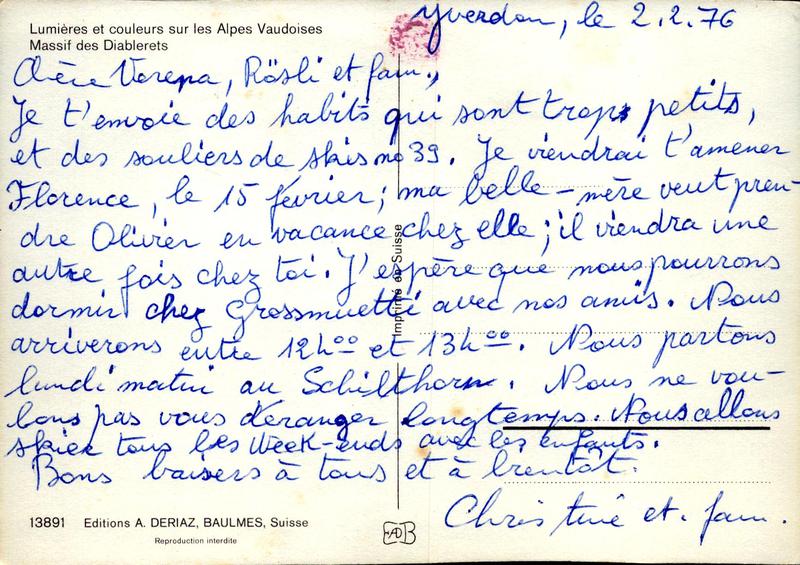 Lumières et couleurs sur les Alpes Vaudoises
Massif des Diablerets
Yverdon, le 2.2.76
Chère Verena, Rösli et fam.,
Je t'envoie des habits qui sont trops petits,
et des souliers de skis no 39. Je viendrai t'amener
Florence, le 15 février; ma belle-mère veut pren-
dre Olivier en vacance chez elle; il viendra une
autre fois chez toi. J'espère que nous pourrons
dormir chez Grossmuetti avec nos amis. Nous
arriverons entre 12h00 et 13h00. Nous partons
lundi matin au Schilthorn. Nous ne vou-
lons pas vous déranger longtemps. Nous allons
skier tous les Week-ends avec les enfants.
Bons baisers à tous et à bientôt.
Christine et. fam.
Imprimé en Suisse
13891 Editions A. DERIAZ, BAULMES, Suisse
Reproduction interdite